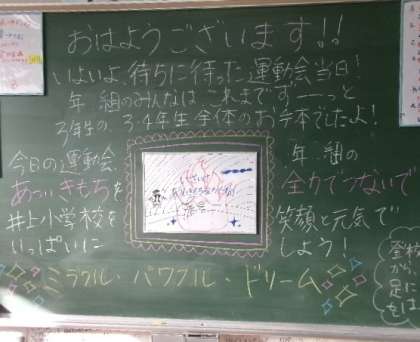 おはようございます!!
いよいよ待ちに待った運動会当日!
年 組のみんなは これまでずーーっと
3年生の 3・4年生全体のお手本でしたよ!
今日の運動会 年 組の
あっついきもちを 全力でつないで
井上小学校を 笑顔と元気で
いっぱいに しよう!
ミラクル・パワフル・ドリーム
登校
足に